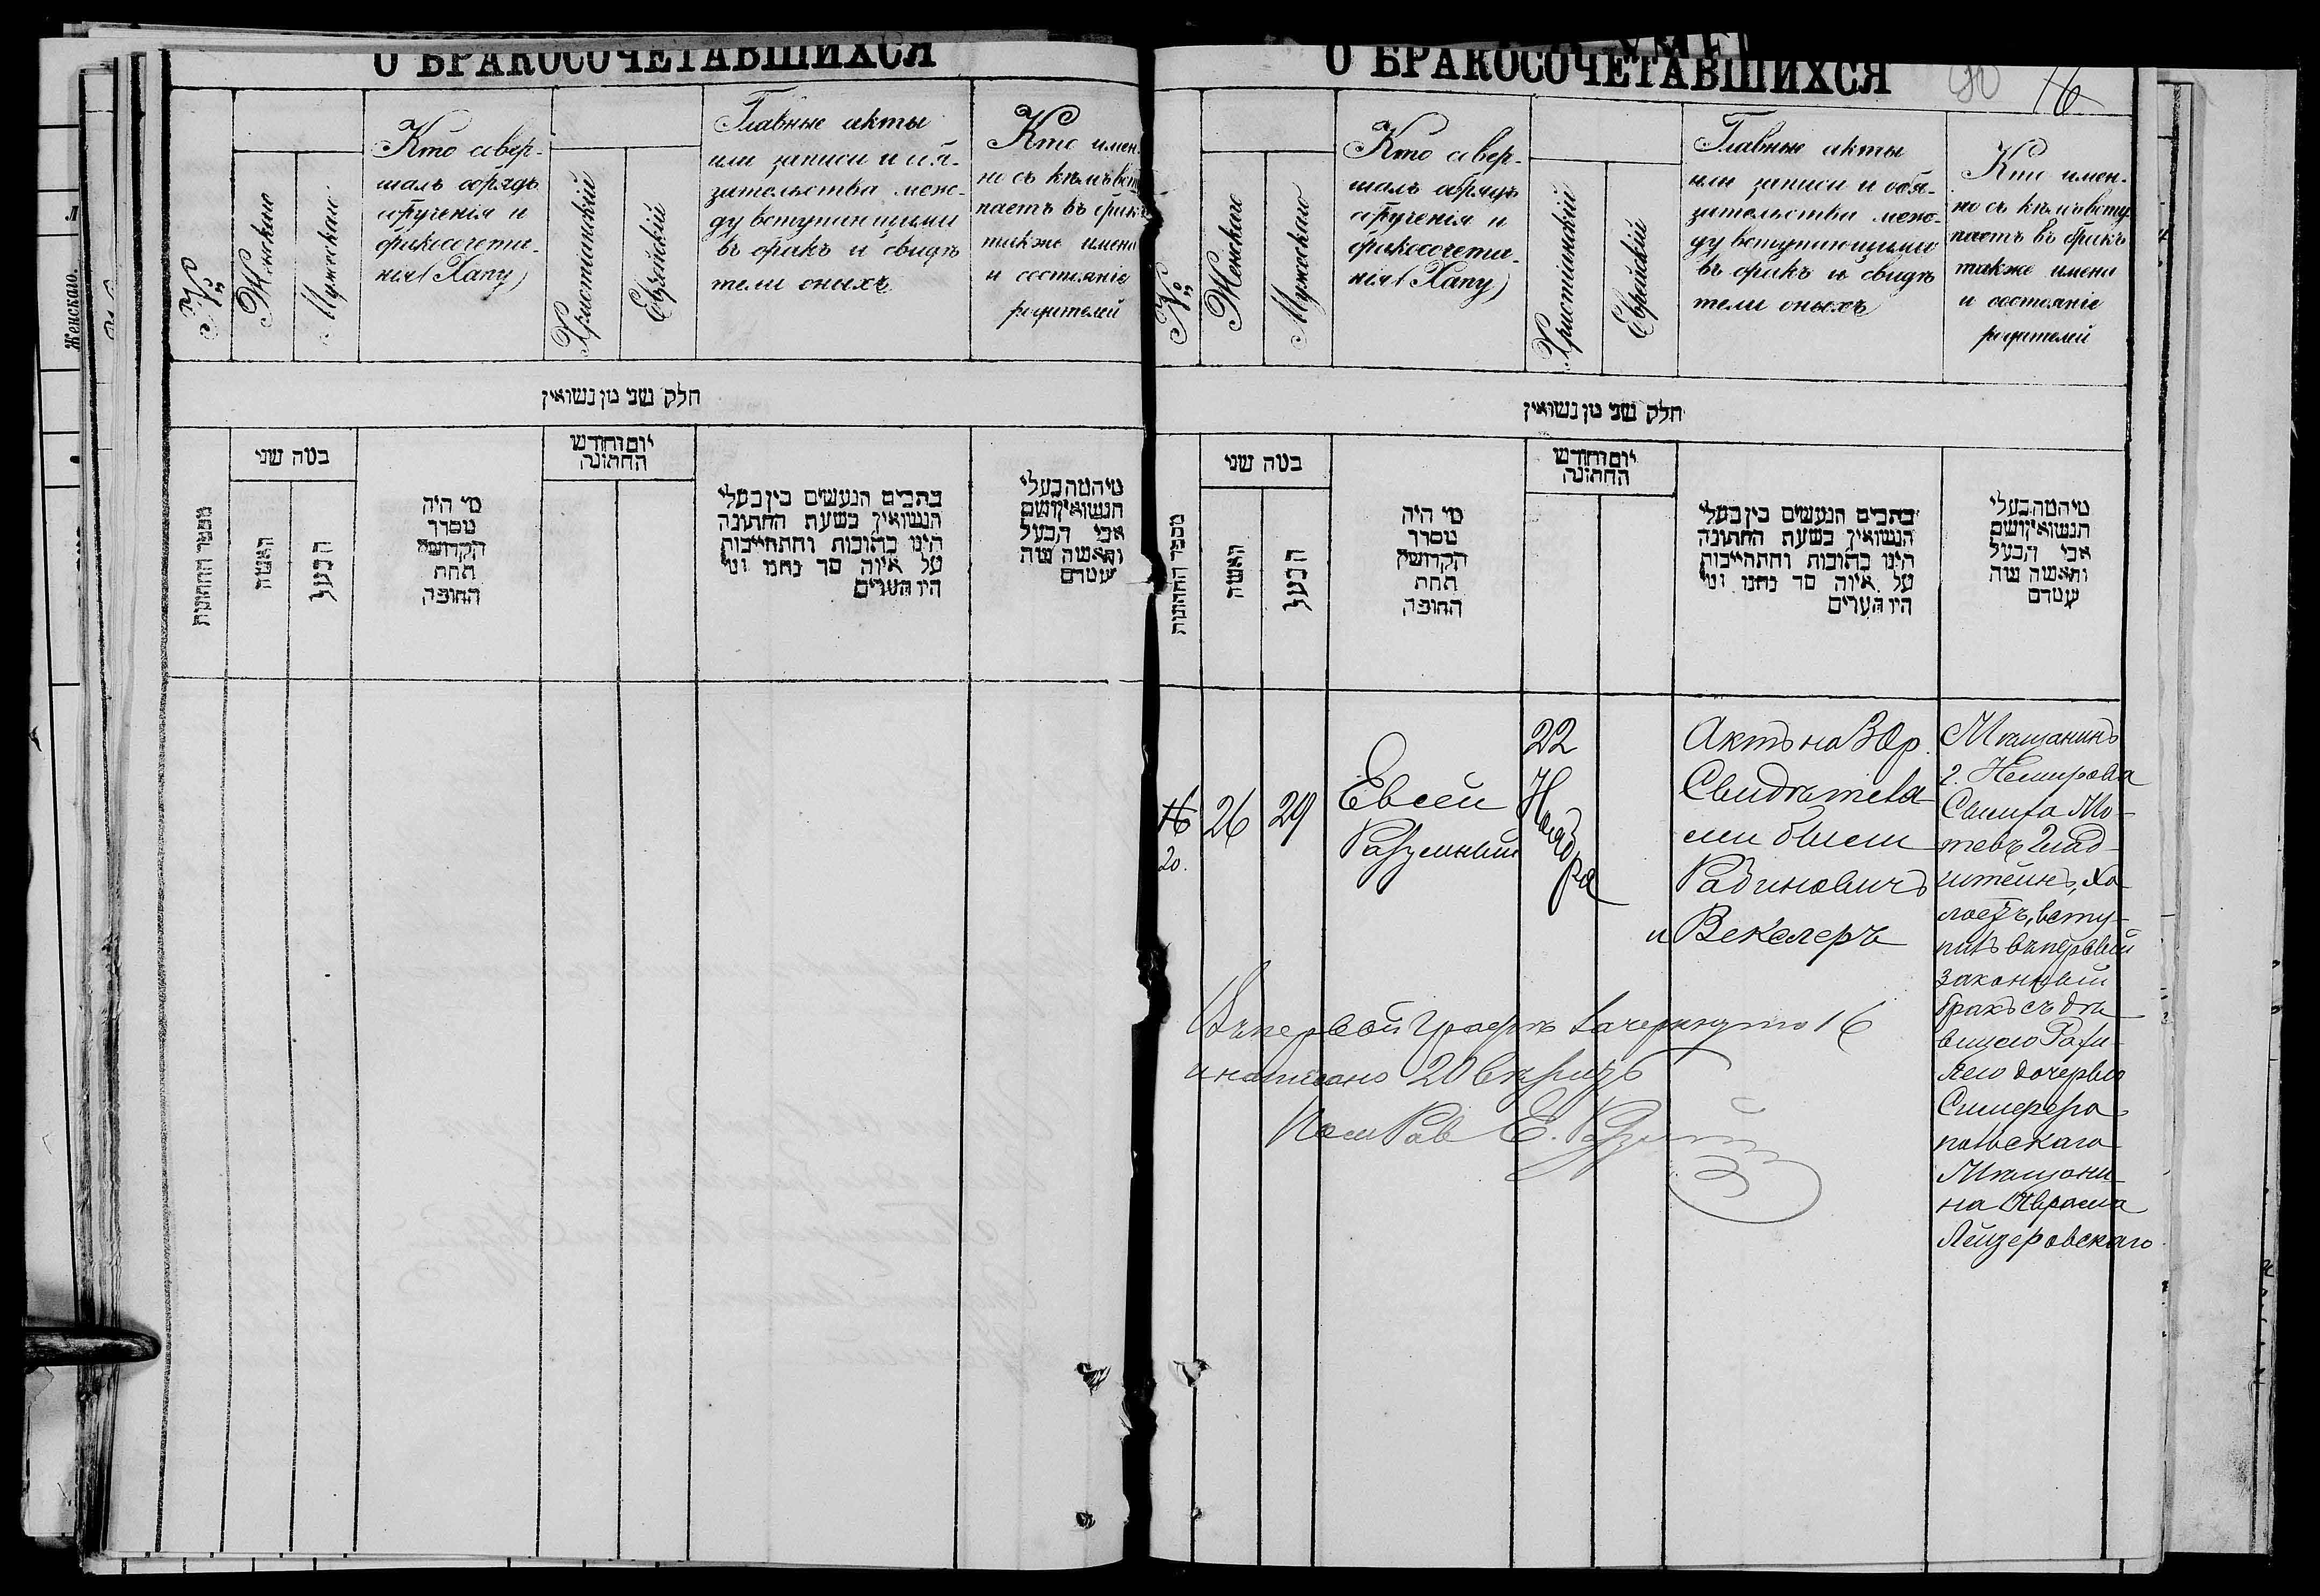 О БРАКОСОЧЕТАВШИХСЯ
№
Женского
Мужескаго
Кто совер-
шалъ обрядъ
обрученія и
бракосочета-
нія (Хапу)
Христіанскій
Еврейскій
Главные акты
или записи и обя-
зательства меж-
ду вступающими
въ бракъ и свидѣ
тели оныхъ
Кто имен-
но съ кѣмъ всту
паетъ въ бракъ
также имена
и состояніе
родителей
חלק שני מן נשואין
מספר החתונות
כמה שני
האשה
הבעל
מי היה
מסדר
הקדושין
תחת
החופה
יום וחודש
החתונה
כתבים הנעשים בין בעלי
הנשואין בשעת החתונה
היינו כתובות והתחייבות
על איזה סך נתנו ומי
היו העדים
מי המה בעלי
הנשואין ושם
אבי הבעל
והאשה ומה
מעמדם
О БРАКОСОЧЕТАВШИХСЯ
16
№
Женскаго
Мужескаго
Кто совер-
шалъ обрядъ
обрученія и
бракосочета-
нія (Хапу)
Христіанскій
Еврейскій
Главные акты
или записи и обя-
зательства меж-
ду вступающими
въ бракъ и свидѣ
тели оныхъ
Кто имен-
но съ кѣмъ всту
паетъ въ бракъ
также имена
и состояніе
родителей
חלק שני מן נשואין
מספר החתונות
כמה שני
האשה
הבעל
מי היה
מסדר
הקדושין
תחת
החופה
יום וחודש
החתונה
כתבים הנעשים בין בעלי
הנשואין בשעת החתונה
היינו כתובות והתחייבות
על איזה סך נתנו ומי
היו העדים
מי המה בעלי
הנשואין ושם
אבי הבעל
והאשה ומה
מעמדם
16
20.
26
29
Евсей
Разумный
22
Ноября
Актъ на
Свидѣтеля
ми были
Рабиновичъ
и Векслеръ
Мѣщанинъ
г. Немирова
Мо-
тевъ Глад
штейнъ, хо
лостъ, всту-
пилъ въ первый
законный
бракъ съ дѣ
вицею Рахи
лею дочерью
Симферо
польскаго
Мѣщани
на Авраама
Лейзеровскаго
Въ первой графѣ зачеркнуто 16
и написано 20
Пом Рав Е. Разумный
Женскаго.